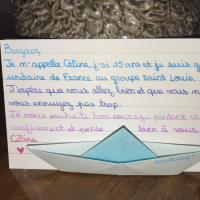 Bonjour,
Je m'appelle Céline, j'ai 15 ans et je suis
unitaire de France au groupe Saint Louis.
J'espère que vous allez bien et que vous n
vous ennuyez pas trop.
Je vous souhaite bon courage pendant ce
confinement et pense bien à vous.
Céline